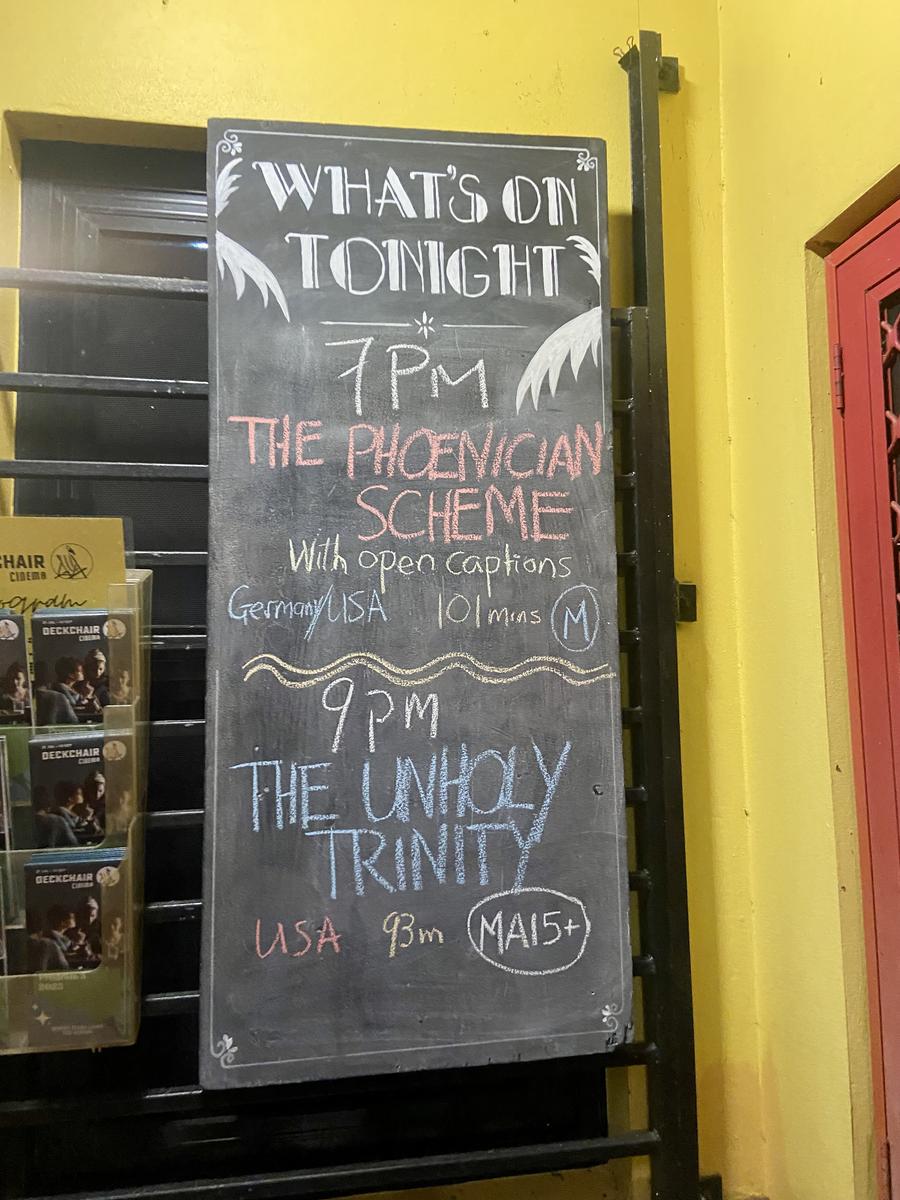 WHAT'S ON
TONIGHT
7PM
THE PHOENICIAN
SCHEME
With open captions
Germany/USA 101 mins M
9PM
THE UNHOLY
TRINITY
USA 93m MA15+
CHAIR
CINEMA
ogram
DECKCHAIR
CINEMA
DECKCHAIR
CINEMA
DECKCHAIR
CINEMA
2025